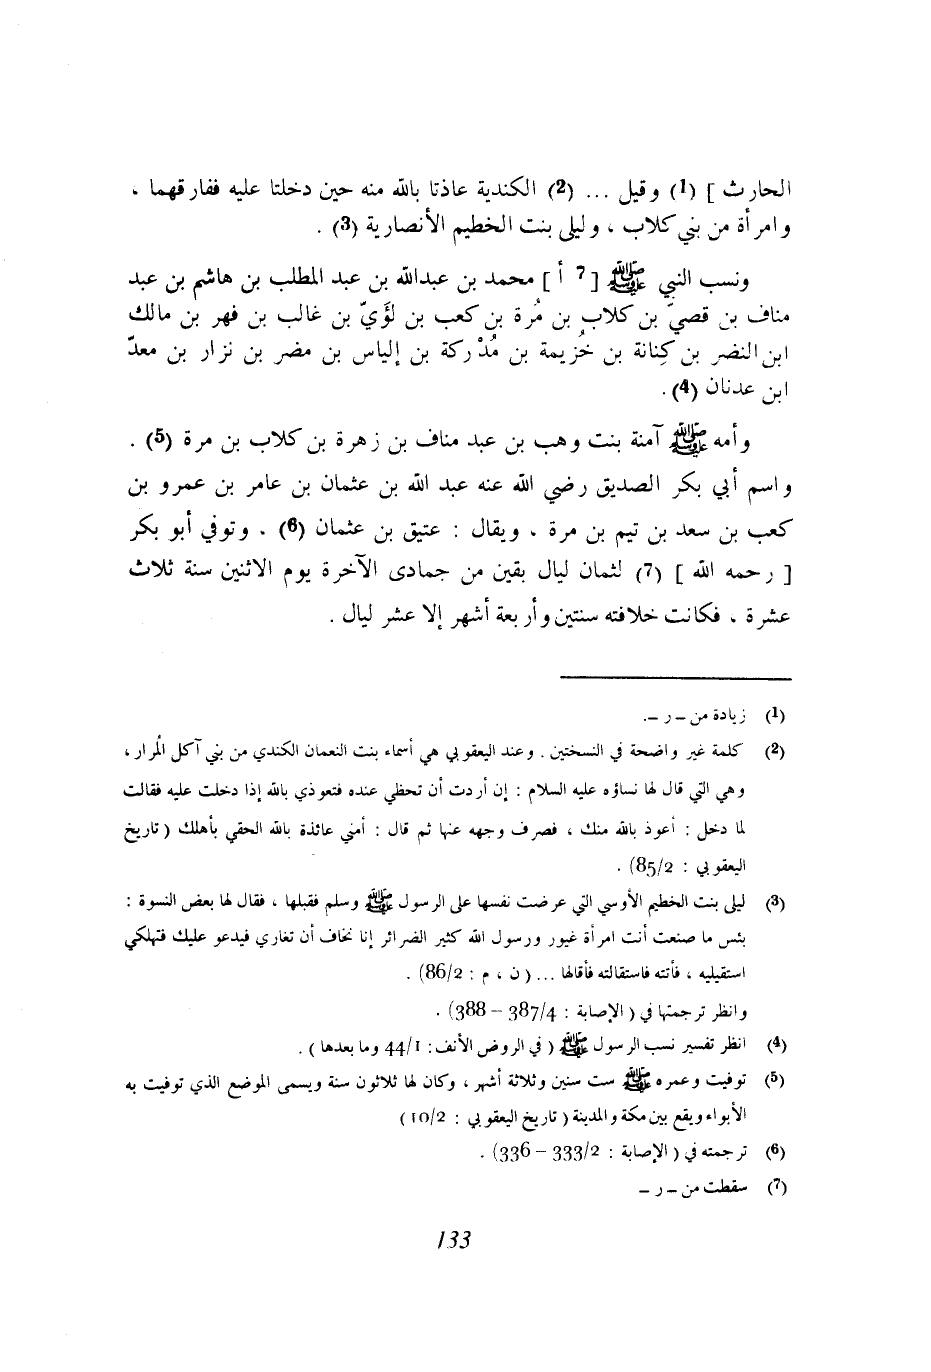 الحارث ] (1) وقيل ... (2) الكندية عاذتا بالله منه حين دخلتا عليه ففارقهما ،
وامرأة من بني كلاب ، وليلى بنت الخطيم الأنصارية (3) .
ونسب النبي ﷺ [ 7 أ ] محمد بن عبدالله بن عبد المطلب بن هاشم بن عبد
مناف بن قصيّ بن كلاب بن مُرة بن كعب بن لؤَيّ بن غالب بن فهر بن مالك
ابن النضر بن كِنانة بن خُزيمة بن مُدْركة بن إلياس بن مضر بن نزار بن معدّ
ابن عدنان (4) .
وأمه ﷺ آمنة بنت وهب بن عبد مناف بن زهرة بن كلاب بن مرة (5) .
واسم أبي بكر الصديق رضي الله عنه عبد الله بن عثمان بن عامر بن عمرو بن
كعب بن سعد بن تيم بن مرة ، ويقال : عتيق بن عثمان (6) . وتوفي أبو بكر
[ رحمه الله ] (7) لثمان ليال بقين من جمادى الآخرة يوم الاثنين سنة ثلاث
عشرة ، فكانت خلافته سنتين وأربعة أشهر إلا عشر ليال .
(1) زيادة من – ر –.
(2) كلمة غير واضحة في النسختين . وعند اليعقوبي هي أسماء بنت النعمان الكندي من بني آكل المُرار ،
وهي التي قال لها نساؤه عليه السلام : إن أردت أن تحظي عنده فتعوذي بالله إذا دخلت عليه فقالت
لما دخل : أعوذ بالله منك ، فصرف وجهه عنها ثم قال : أمني عائذة بالله الحقي بأهلك ( تاريخ
اليعقوبي : 85/2) .
(3) ليلى بنت الخطيم الأوسي التي عرضت نفسها على الرسول ﷺ وسلم فقبلها ، فقال لها بعض النسوة :
بئس ما صنعت أنت امرأة غيور ورسول الله كثير الضرائر إنا نخاف أن تغاري فيدعو عليك فتهلكي
استقيليه ، فأتته فاستقالته فأقالها ... ( ن ، م : 86/2) .
وانظر ترجمتها في ( الإصابة : 387/4 – 388) .
(4) انظر تفسير نسب الرسول ﷺ ( في الروض الأنف : 44/1 وما بعدها ) .
(5) توفيت وعمره ﷺ ست سنين وثلاثة أشهر ، وكان لها ثلاثون سنة ويسمى الموضع الذي توفيت به
الأبواء ويقع بين مكة والمدينة ( تاريخ اليعقوبي : 10/2 )
(6) ترجمته في ( الإصابة : 333/2 – 336) .
(7) سقطت من – ر –
133